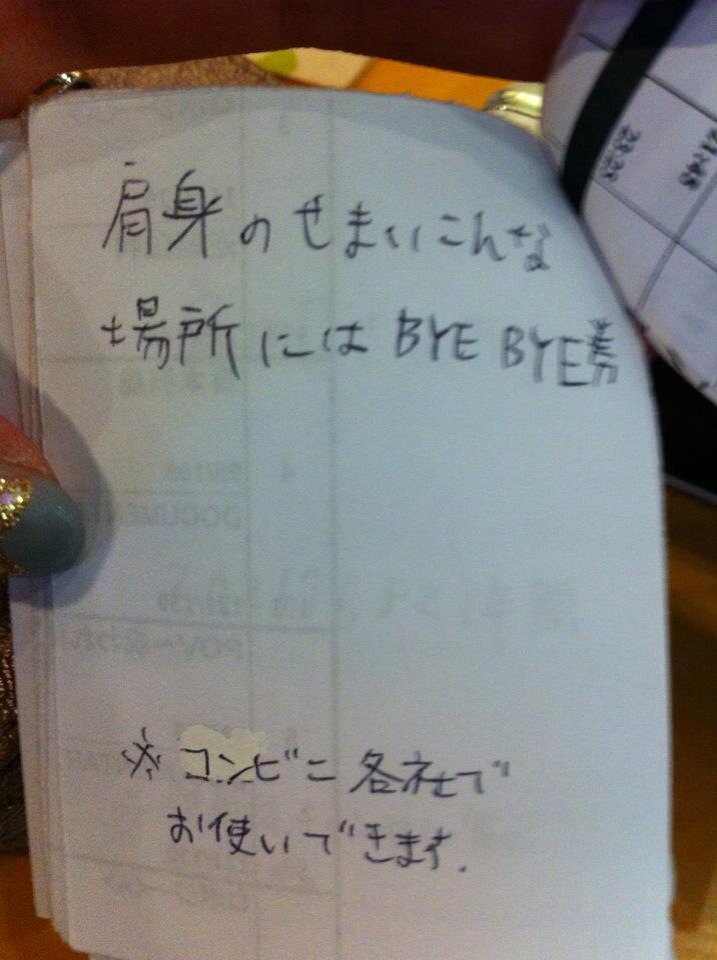 肩身のせまいこんな
場所には BYE BYE券
※ コンビニ各社で
お使いできます.